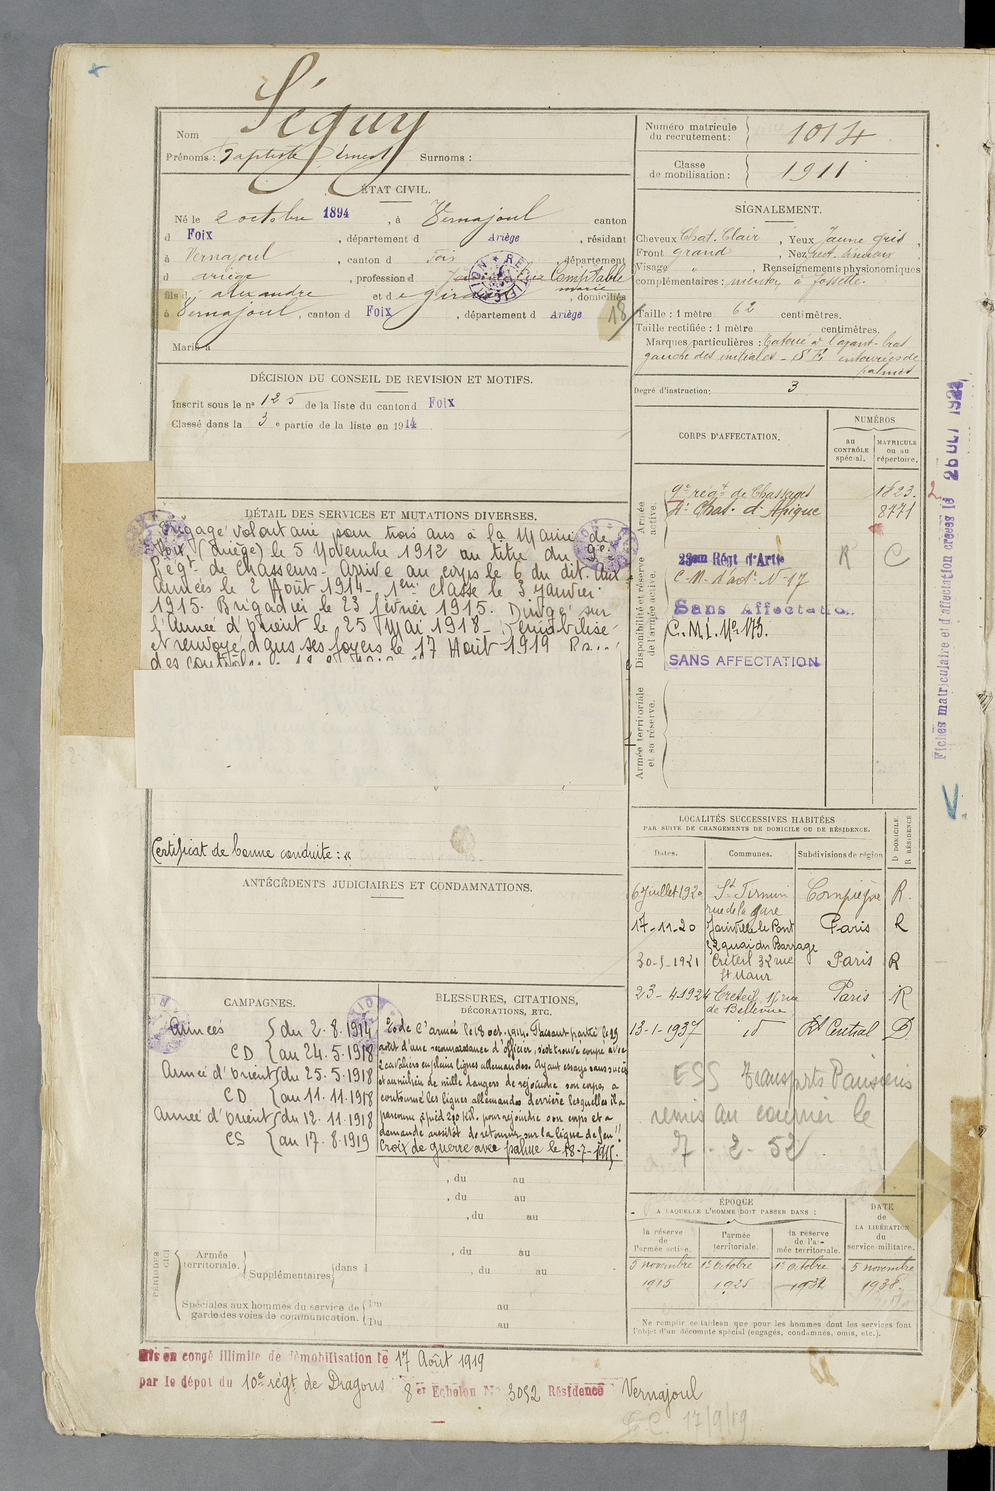 Nom Séguy
Prénoms : Baptiste Ernest Surnoms :
Numéro matricule du recrutement : 1014
Classe de mobilisation : 1911
ÉTAT CIVIL.
Né le 2 octobre 1894, à Vernajoul canton
d Foix, département d Ariège, résidant
à Vernajoul, canton d Foix, département
d Ariège, profession d Comptable
fils d' Alexandre et d e marie, domiciliés
à Vernajoul, canton d Foix, département d Ariège
18
Marié à
DÉCISION DU CONSEIL DE REVISION ET MOTIFS.
Inscrit sous le nº 125 de la liste du canton d Foix
Classé dans la 3 e partie de la liste en 1914
SIGNALEMENT.
Cheveux Chat. Clair, Yeux Jaune gris,
Front grand, Nez rect.
Visage " , Renseignements physionomiques
complémentaires : menton à fossette.
Taille : 1 mètre 62 centimètres.
Taille rectifiée : 1 mètre centimètres.
Marques particulières : Tatoué à l'avant-bras
gauche des initiales - S E entourées de
palmes
Degré d'instruction : 3
DÉTAIL DES SERVICES ET MUTATIONS DIVERSES.
Engagé volontaire pour trois ans à la Mairie de
Foix (Ariège) le 5 Novembre 1912 au titre du 9e
Régt de Chasseurs. Arrivé au corps le 6 du dit. Aux
Armées le 2 Août 1914. 1ere classe le 3 Janvier
1915. Brigadier le 23 février 1915. Dirigé sur
l'Armée d'Orient le 25 Mai 1918. Démobilisé
et renvoyé dans ses foyers le 17 Août 1919
des
Certificat de bonne conduite : "
ANTÉCÉDENTS JUDICIAIRES ET CONDAMNATIONS.
CORPS D'AFFECTATION.
NUMÉROS
au CONTRÔLE spécial.
MATRICULE ou au répertoire.
Armée active.
9e régt de Chasseurs 1823.
4e Chas. d'Afrique 8771
2
Disponibilité et réserve de l'armée active.
23eme Régt d'Artie R C
C.M. d'art. Nº 17
Sans Affectation.
C.M.I. Nº 173.
SANS AFFECTATION
Armée territoriale et sa réserve.
Fiches matriculaire et d'affectation créées le 26 OCT 192
LOCALITÉS SUCCESSIVES HABITÉES
PAR SUITE DE CHANGEMENTS DE DOMICILE OU DE RÉSIDENCE.
Dates. Communes. Subdivisions de région D DOMICILE. R RÉSIDENCE
6 Juillet 1920 St Firmin rue de la gare Compiègne R.
17-11-20 Joinville le Pont 32 quai du Barrage Paris R
30-5-1921 Créteil 32 rue St Maur Paris R
23-4-1924 Créteil, 15 rue de Bellevue Paris R
13-1-1937 id Rt Central D
ESS Transports Parisiens
remis au courrier le
7-2-52
CAMPAGNES.
Armées { du 2.8.1914
CD { au 24.5.1918
Armée d'Orient { du 25.5.1918
CD { au 11.11.1918
Armée d'Orient { du 12.11.1918
CS { au 17.8.1919
BLESSURES, CITATIONS, DÉCORATIONS, ETC.
l'armée le 18 oct. 1914. Faisant partie le 29
août d'une reconnaissance d'officier, s'est trouvé coupé avec
2 cavaliers en pleines lignes allemandes. Ayant essayé sans succès
et au milieu de mille dangers de rejoindre son corps, a
contourné les lignes allemandes derrière lesquelles il a
parcouru à pied 290 kil. pour rejoindre son corps et a
demandé aussitôt de retourner sur la ligne de feu".
Croix de guerre avec palme le 18-7-1915.
, du au
, du au
, du au
, du au
, du au
PÉRIODES
Armée territoriale. { Supplémentaires { dans l
Spéciales aux hommes du service de garde des voies de communication. { Du au
Du au
ÉPOQUE
A LAQUELLE L'HOMME DOIT PASSER DANS :
DATE de LA LIBÉRATION du service militaire.
la réserve de l'armée active. l'armée territoriale. la réserve de l'armée territoriale.
5 novembre 1915 1er octobre 1925 1er octobre 1931 5 novembre 1938.
Ne remplir ce tableau que pour les hommes dont les services font
l'objet d'un décompte spécial (engagés, condamnés, omis, etc.).
Mis en congé illimité de démobilisation le 17 Août 1919
par le dépot du 10e régt de Dragons 8 e Echelon Nº 3052 Résidence Vernajoul
17/9/19